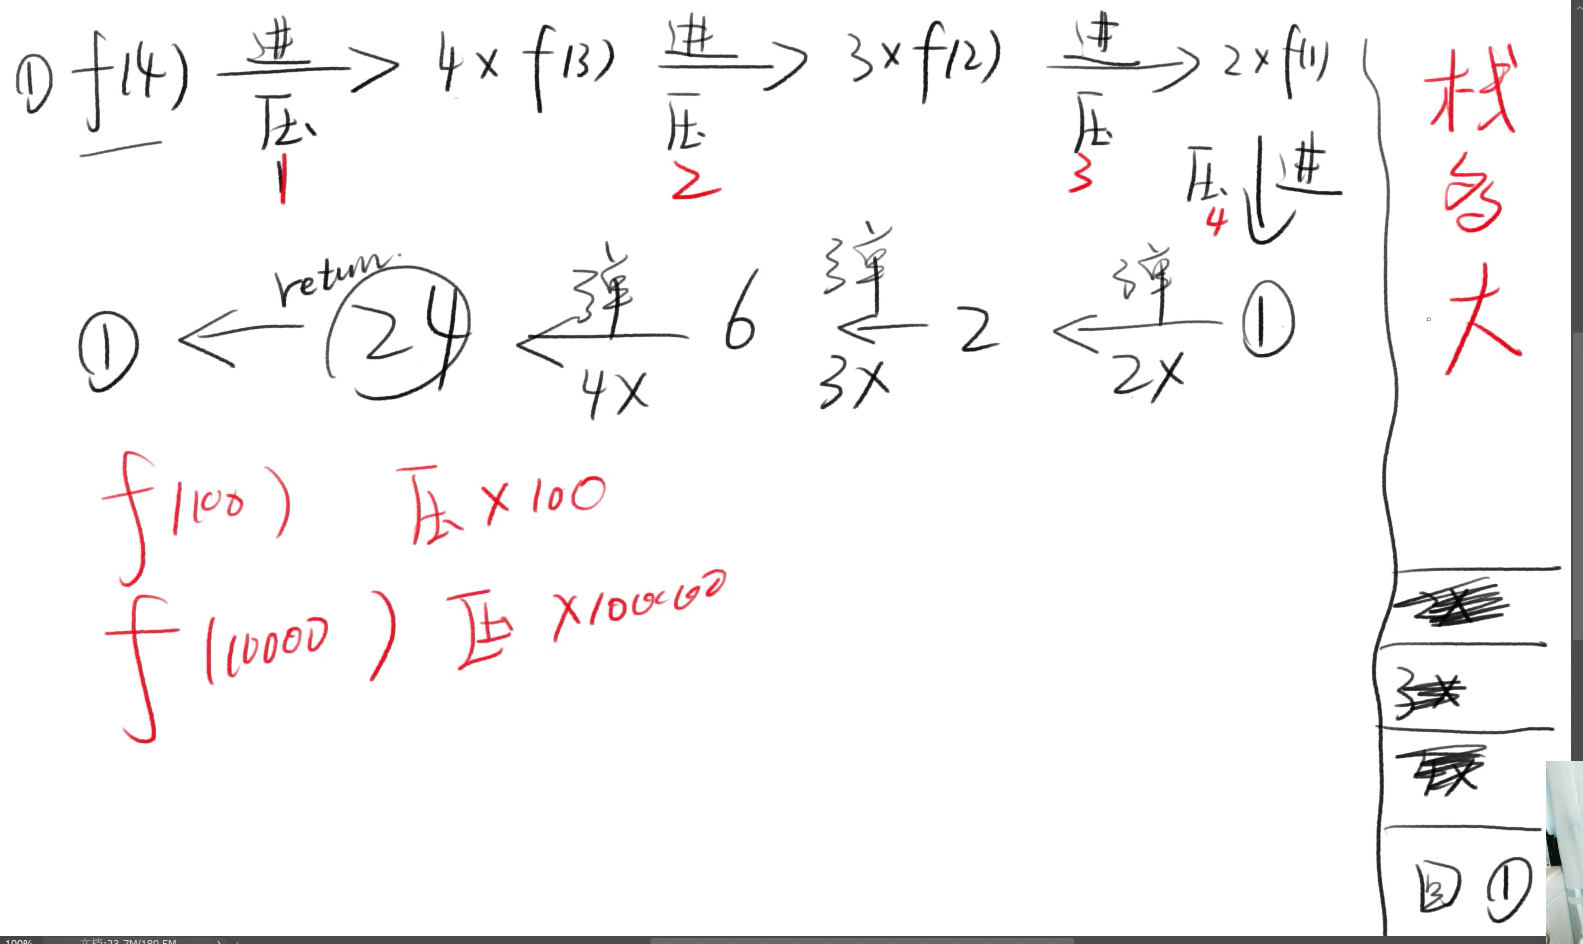 ① f(4) 进 压 1 4 × f(3) 进 压 2 3 × f(2) 进 压 3 2 × f(1)
压 4 进
① return 24 弹 4X 6 弹 3X 2 弹 2X ①
f(100) 压 × 100
f(10000) 压 ×10000
栈
多
大
2X
3X
4X
回 ①
100% 文档:23.7M/180.5M